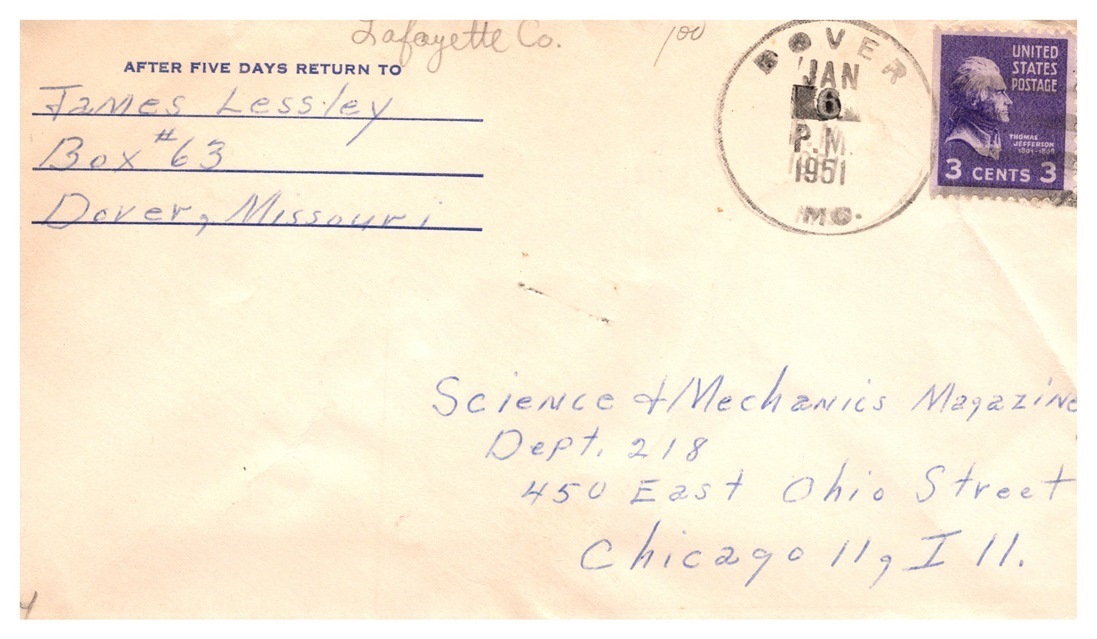 Lafayette Co.
100
AFTER FIVE DAYS RETURN TO
James Lessley
Box #63
Dover, Missouri
DOVER
JAN
6
P.M.
1951
MO.
UNITED
STATES
POSTAGE
THOMAS
JEFFERSON
1801-1809
3 CENTS 3
Science & Mechanics Magazine
Dept. 218
450 East Ohio Street
Chicago 11, Ill.